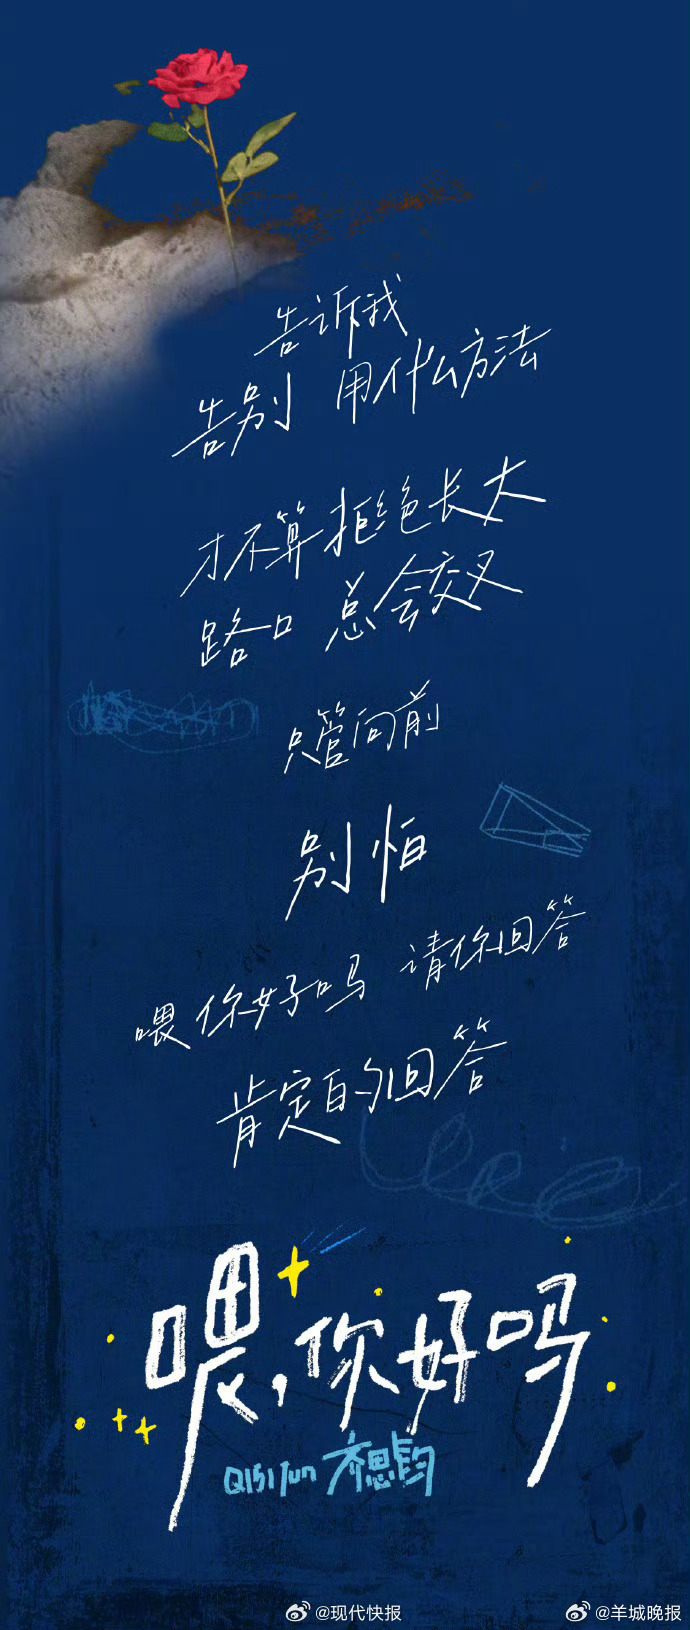 告诉我
告别 用什么方法
才不算拒绝长大
路口 总会交叉
只管向前
别怕
喂 你好吗 请你回答
肯定的回答
喂,你好吗
QISIJun 齐思钧
@现代快报 @羊城晚报